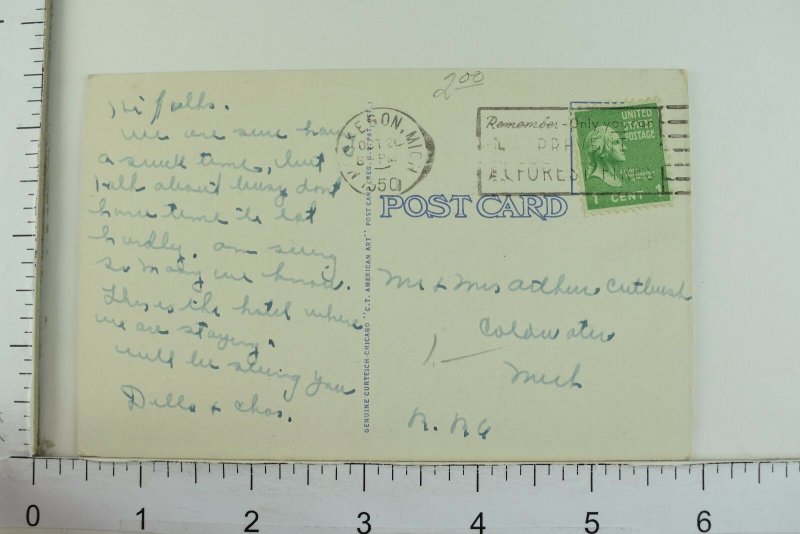 Hi folks.
We are sure hav
a swell time, but
talk about busy dont
have time to eat
hardly. am seeing
so many we know.
This is the hotel where
we are staying.
will be seeing you
Della + Chas.
GENUINE CURTEICH-CHICAGO "C.T. AMERICAN ART" POST CARD (REG. U.S. PAT. OFF.)
2.00
MUSKEGON, MICH
1950
Remember-Only you
PR
FOREST FIRES
UNITED
STATES
POSTAGE
1 CENT 1
POST CARD
Mr + Mrs Cutbush
Coldwater
Mich
1
0 1 2 3 4 5 6